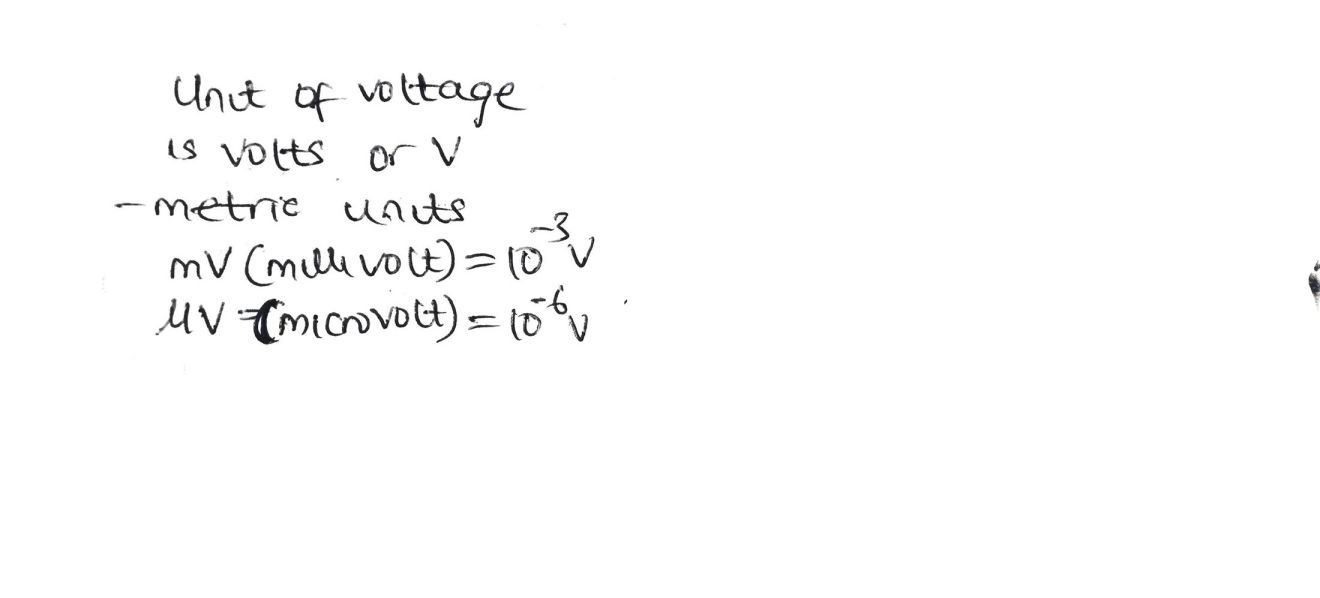 Unit of voltage
is volts or V
- metric units
mV (millivolt) = 10⁻³V
μV (microvolt) = 10⁻⁶V